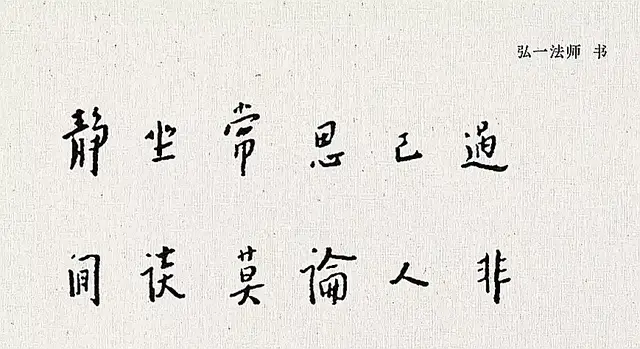 弘一法师 书
静坐常思己過
閒谈莫論人非